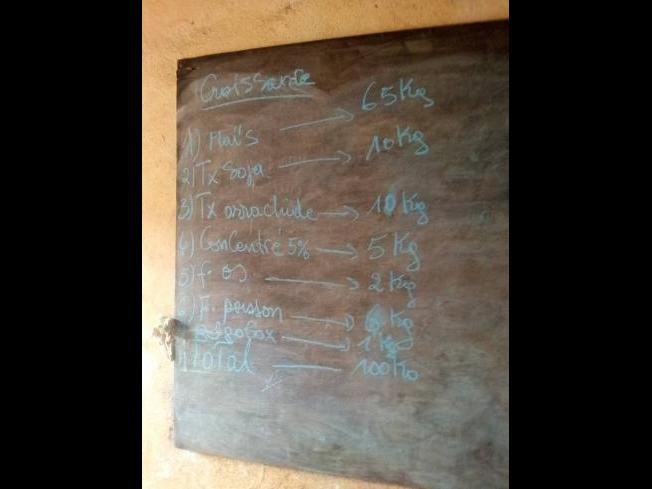 Croissance
1) Maïs → 65 Kg
2) Tx Soja → 10 Kg
3) Tx arrachide → 10 Kg
4) Concentré 5% → 5 Kg
5) f. os → 2 Kg
6) F. poisson → Kg
→ 1 Kg
Total — 100 Ko